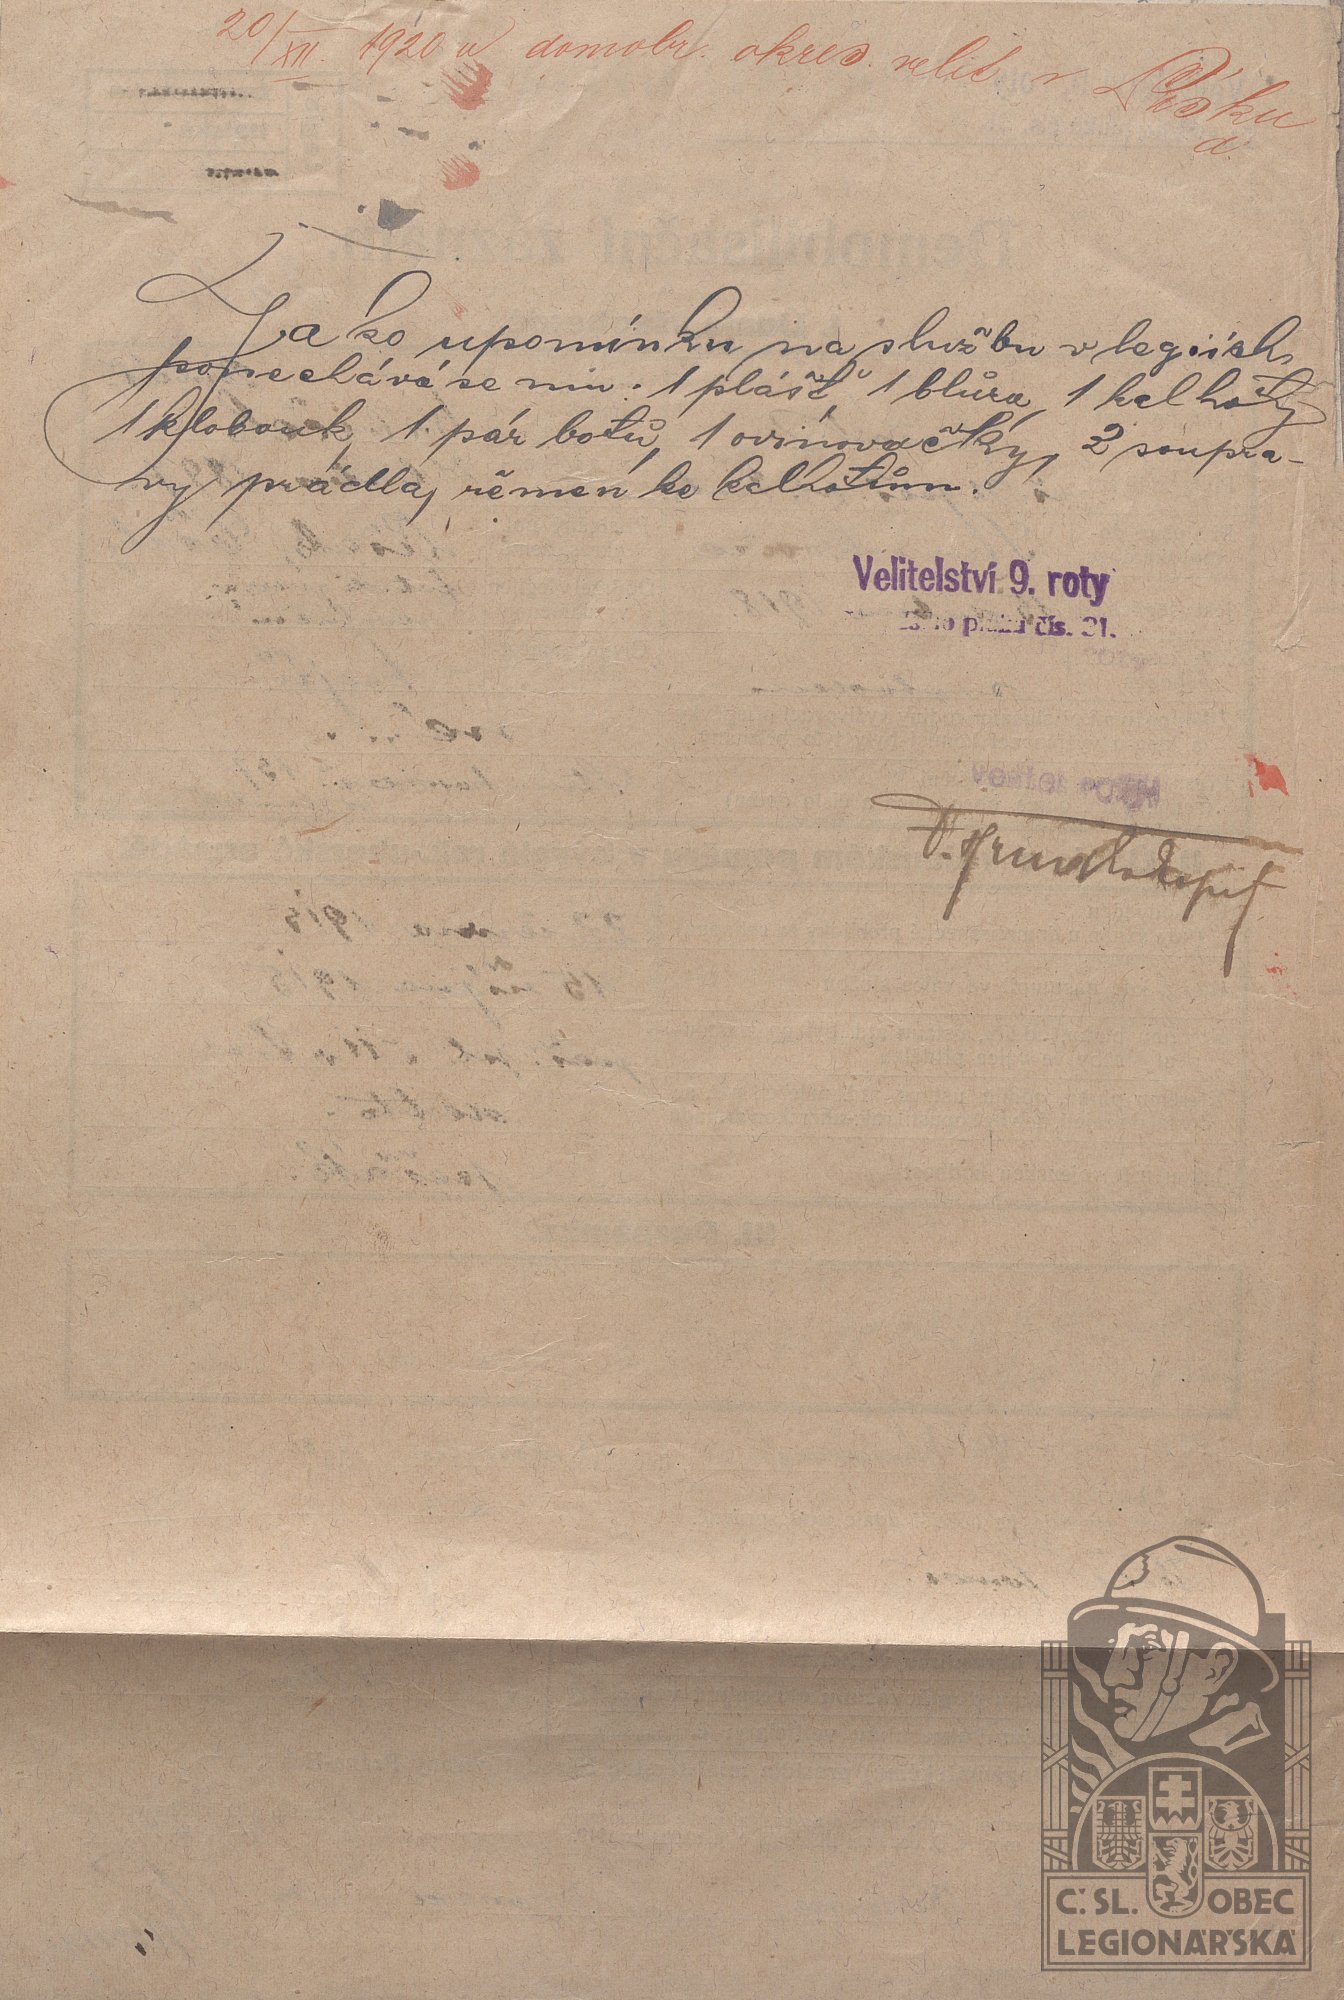 20/XII. 1920 u domobr. okres. velit. v Písku
Jako upomínku na službu v legiích
ponechává se mu: 1 plášť, 1 blůza, 1 kalhoty
1 klobouk, 1 pár botů, 1 ovinovačky, 2 soupra-
vy prádla, řemen ke kalhotům.
Velitelství 9. roty
pluku čís. 31.
Č. SL. OBEC
LEGIONÁŘSKÁ